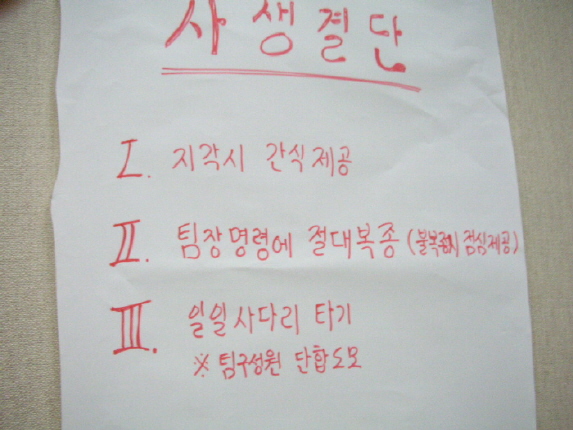 사생결단
I. 지각시 간식제공
II. 팀장명령에 절대복종 (불복종시 점심제공)
III. 일일사다리 타기
※ 팀구성원 단합도모